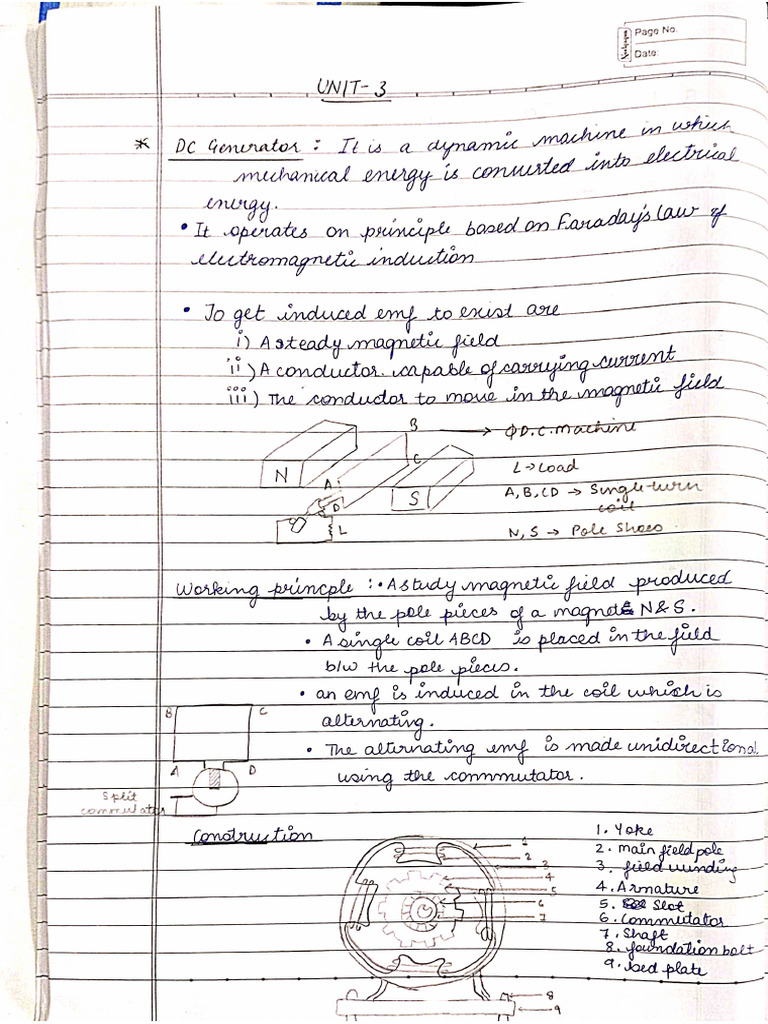 Page No.
Date:
UNIT-3
* DC Generator : It is a dynamic machine in which
mechanical energy is converted into electrical
energy.
• It operates on principle based on Faraday's law of
electromagnetic induction
• To get induced emf to exist are
i) A steady magnetic field
ii) A conductor. capable of carrying current
iii) The conductor to move in the magnetic field
B
→ ϕD.C. machine
C
N
L → Load
A
S
A, B, CD → Single-turn
coil
D
L
N, S → Pole Shoes
Working princple : • A study magnetic field produced
by the pole pieces of a magnets N & S.
• A single coil ABCD is placed in the field
b/w the pole pieces.
• an emf is induced in the coil which is
alternating.
B C
• The alternating emf is made unidirectional
A D
using the commutator.
Split
commutator
Construction
1. Yoke
2. main field pole
3. field winding
4. Armature
5. Slot
6. Commutator
7. Shaft
8. foundation bolt
9. bed plate
1
2
3
4
5
6
7
8
9